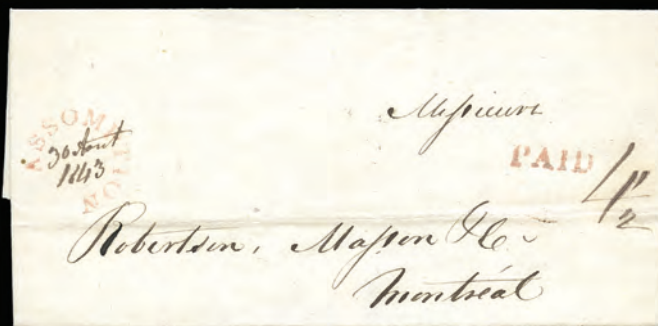 ASSOMPTION
30 Aout
1843
Messieurs
PAID
4½
Robertson, Masson &C
Montréal